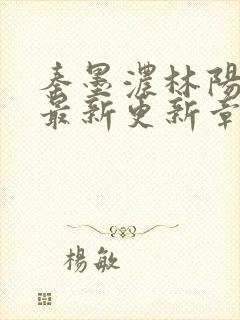 秦墨濃林陽
最新更新章
楊敏